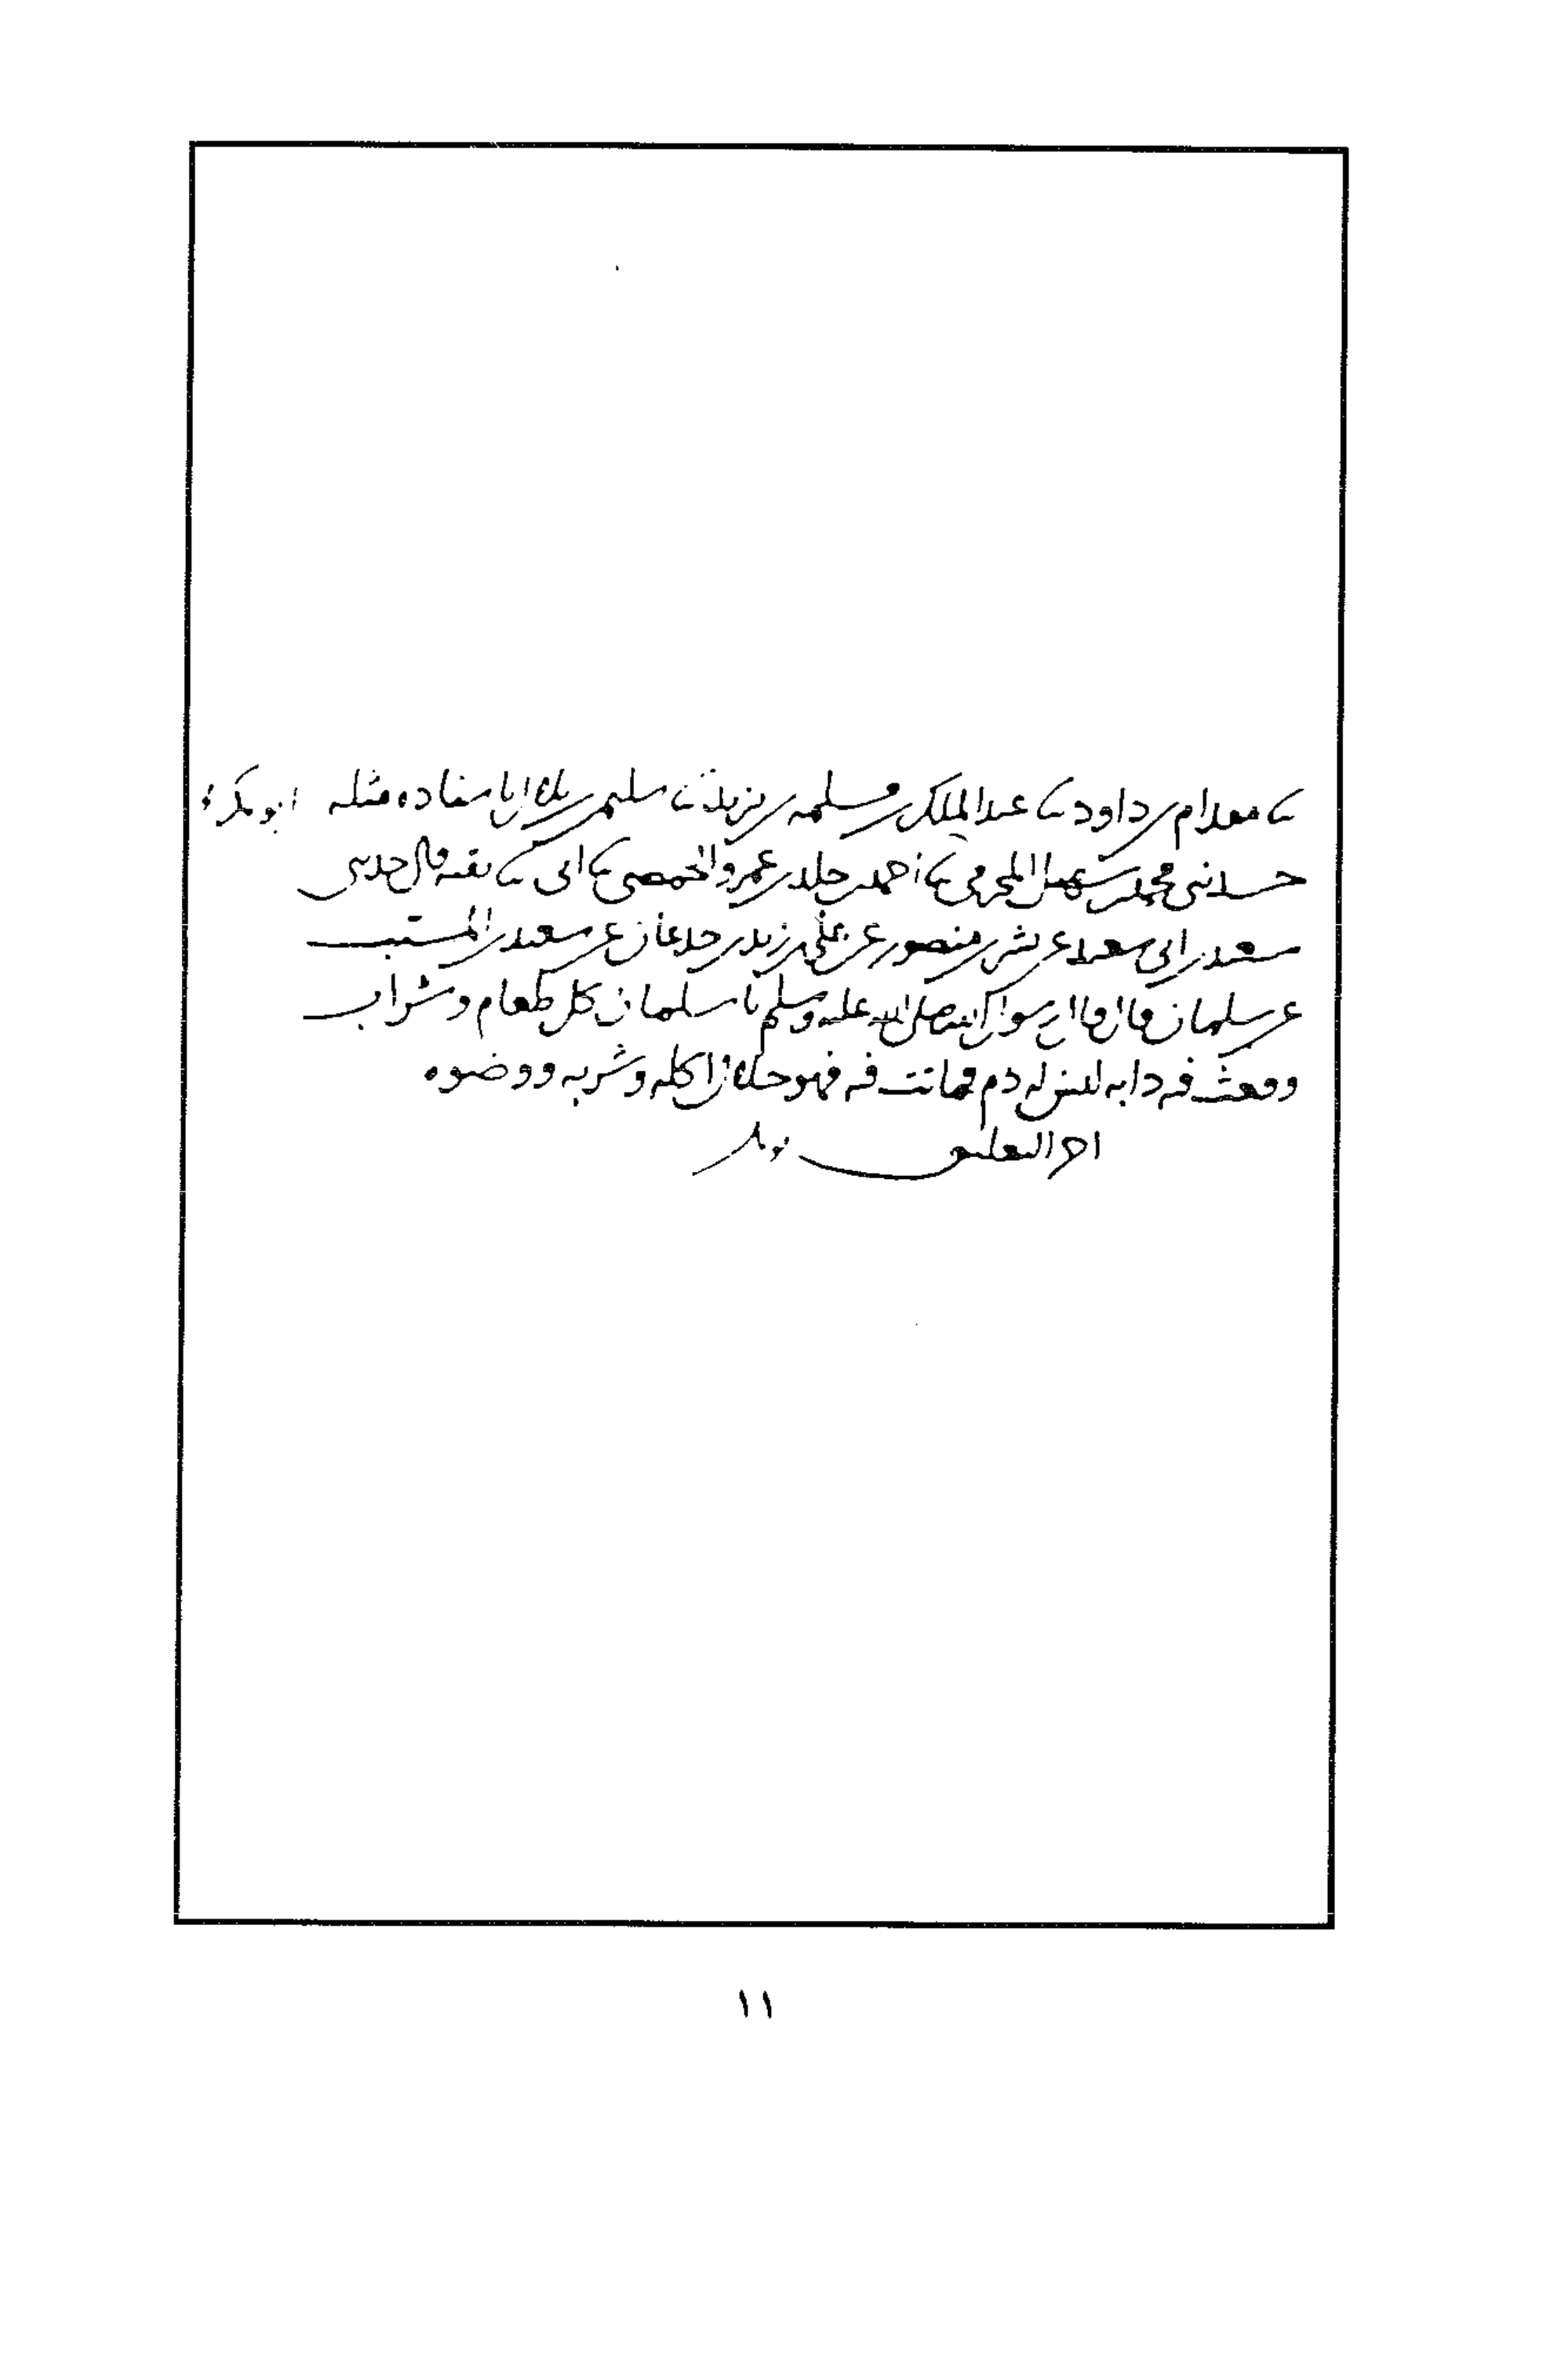 ثنا مقدام بن داود ثنا عبد الملك بن مسلمة بن يزيد ثنا سليمن بن بلال باسناده مثله ابو بكر
حدثني محمد بن سهل المخرمي ثنا احمد بن خلد بن عمرو الحمصي ثنا ابي ثنا بقية قال حدثني
سعيد بن ابي سعيد عن بشر بن منصور عن علي بن زيد بن جدعان عن سعيد بن المسيب
عن سلمان قال قال رسول الله صلى الله عليه وسلم يا سلمان كل طعام وشراب
وقعت فيه دابة ليس له دم فماتت فيه فهو حلال اكله وشربه ووضوه
اخر التعليق
١١